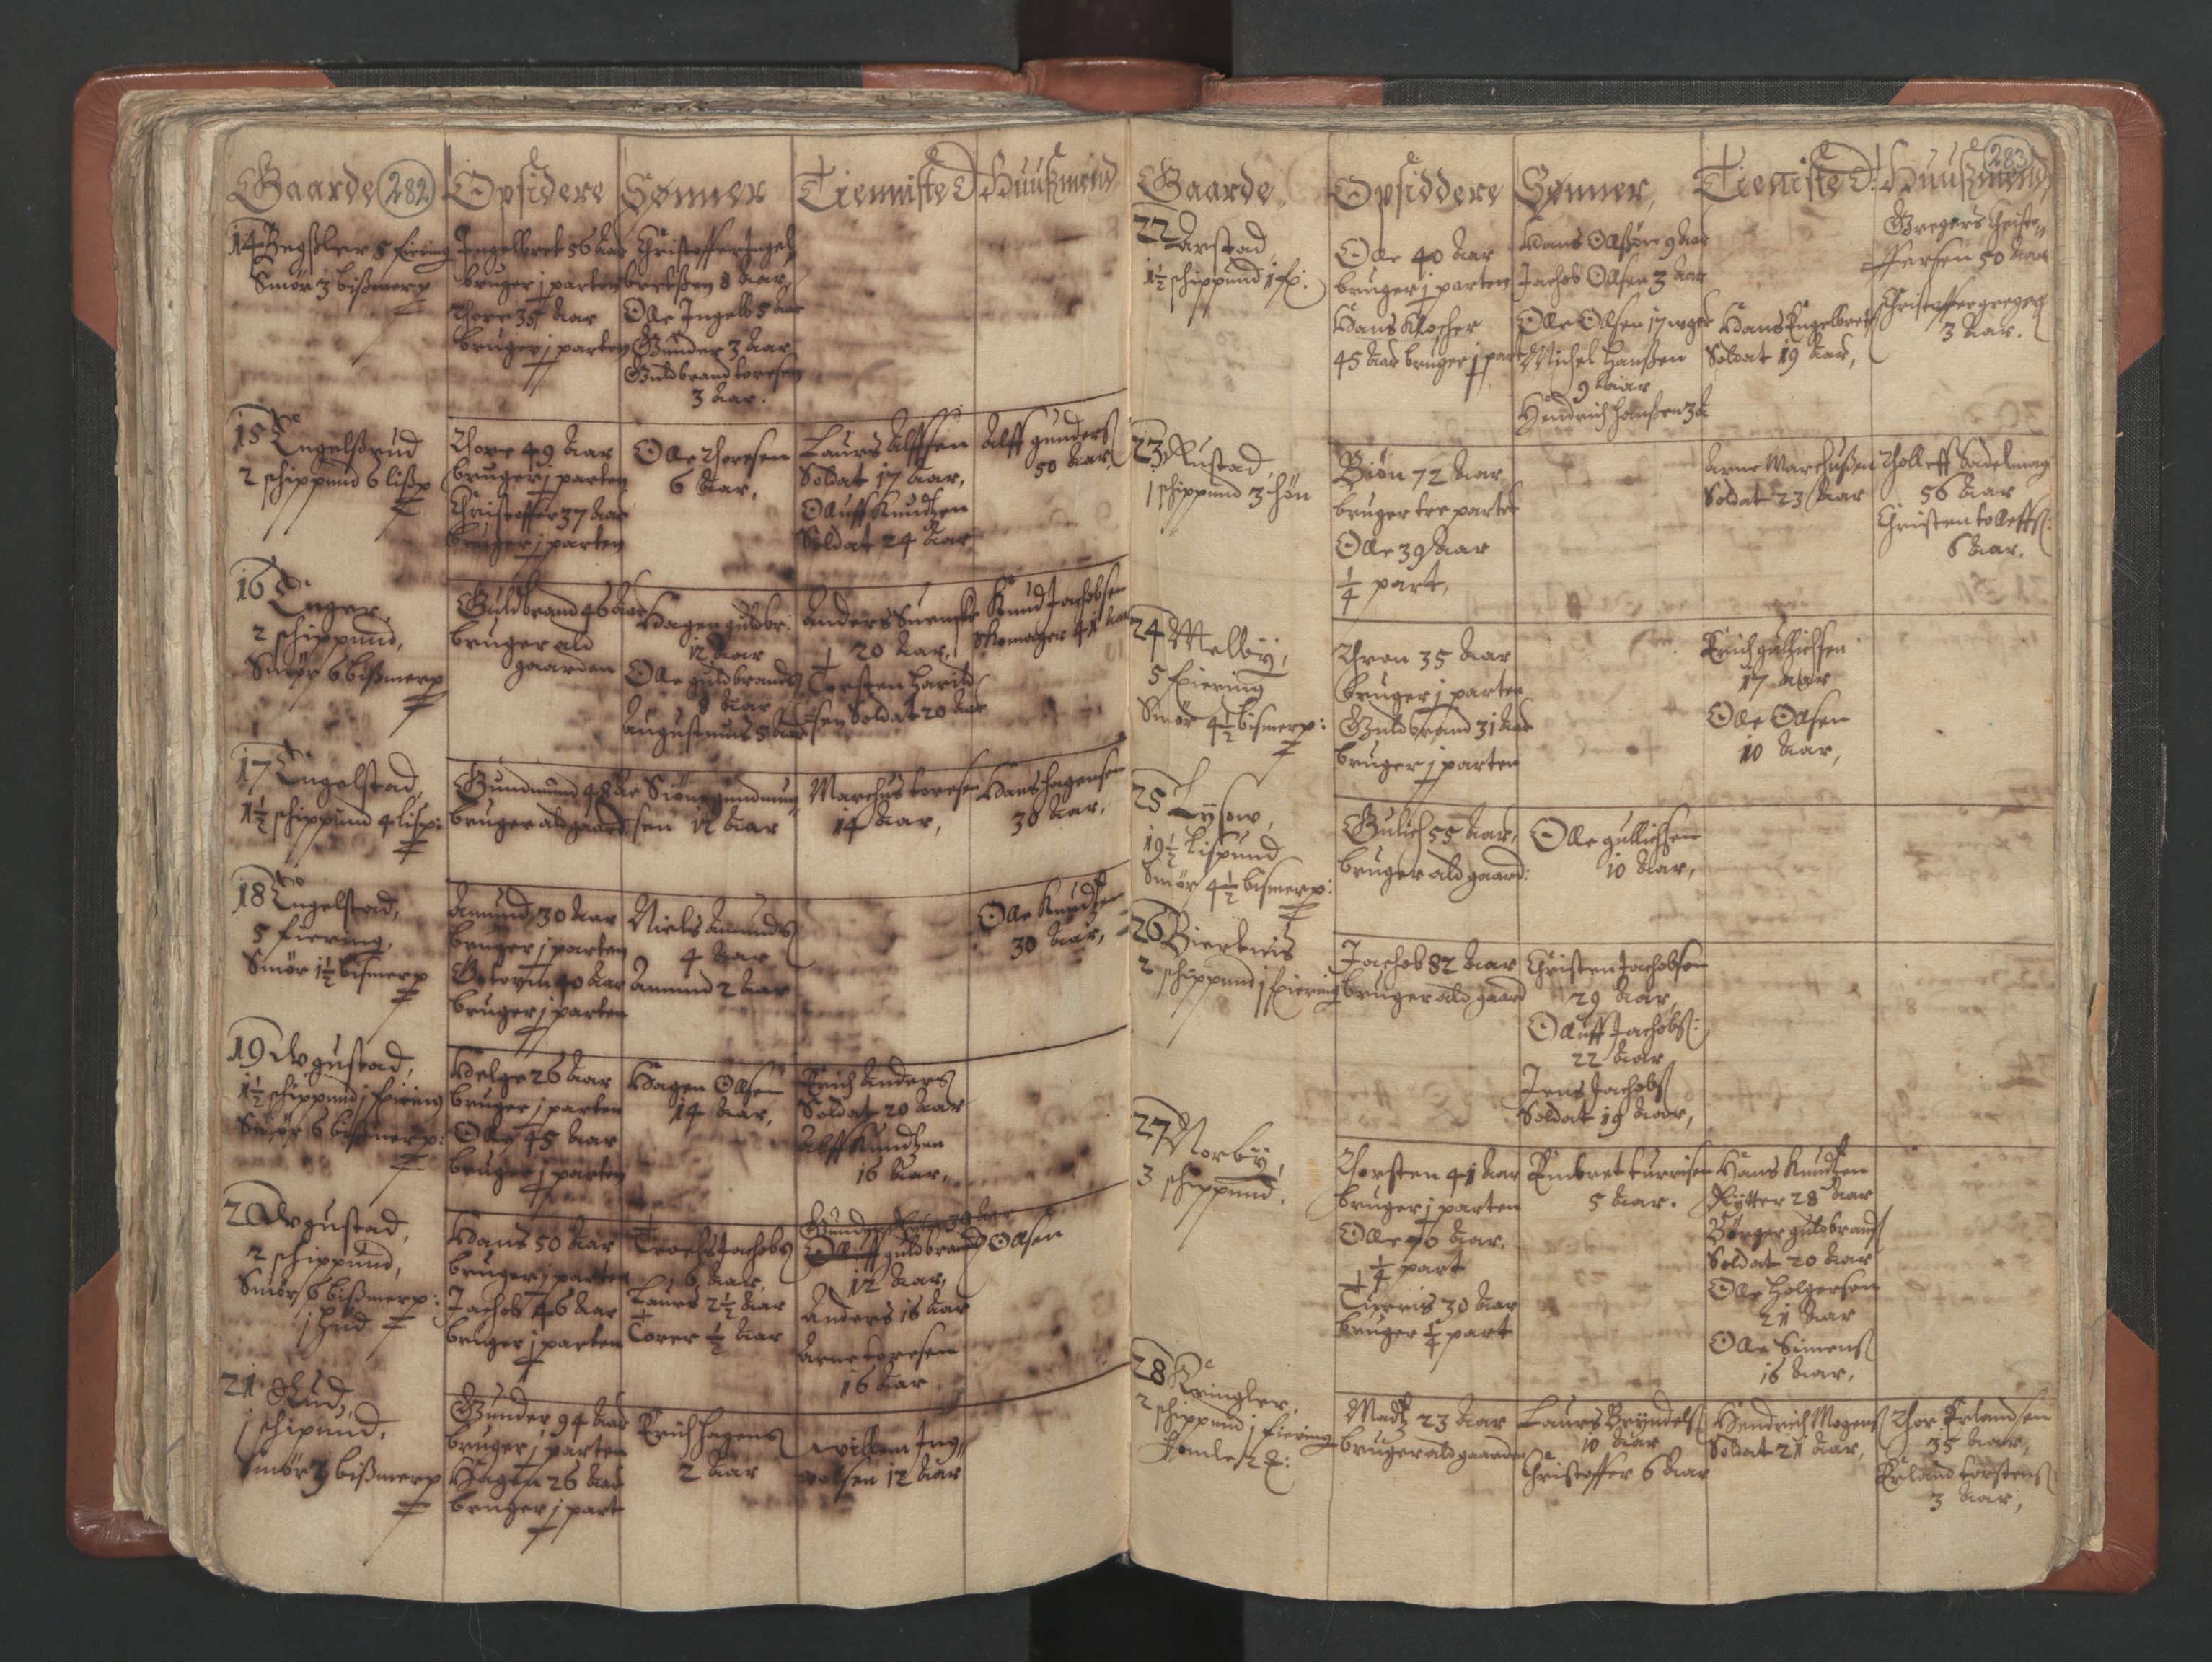 Gaarde 282 Opsidere Sønner Tienniste D Huußmend
14 5 fiering
Smør 3 bißmerp
Ingelbret 56 Aar
bruger j parten
Thore 35 Aar
bruger j parten
Christoffer Ingel
bretßen 8 Aar,
Olle Ingelb 5 Aar
Gunder 3 Aar
Guldbrand toresen
3 Aar.
15 Engelßrud
2 schippund 6 lißp
Thore 49 Aar
bruger j parten
Christoffer 37 Aar
bruger j parten
Olle Thoresen
6 Aar,
Laurs Alffsen
Soldat 17 Aar,
Oluff Knudtzen
Soldat 24 Aar
Alff gunders
50 Aar,
16 Enger,
2 schippund,
Smør 6 bißmerp
Guldbrand 46 Aar
bruger ald
gaarden
Hagen guldbr:
12 Aar
Olle guldbrands
8 Aar
Augustinus 5 Aar
Anders Suenske
20 Aar,
Torsten Harild
sen Soldat 20 Aar
Knud Jachobsen
Skomager 41 Aar
17 Engelstad,
1½ schippund 4 lisp:
Gundmund 48 Aar
bruger ald gaard
Siøne gundmun
sen 12 Aar
Marchus toresen
14 Aar,
Hans Hagensen
30 Aar,
18 Engelstad,
5 fiering,
Smør 1½ bismerp
Amund 30 Aar
bruger j parten
40 Aar
bruger j parten
Niels Amunds
4 Aar
Amund 2 Aar
Olle Knudtzen
30 Aar,
19 Augustad,
1½ schippund j fiering
Smør 6 bißmerp:
Helge 26 Aar
bruger j parten
Olle 45 Aar
bruger j parten
Hagen Olsen
14 Aar,
Erich Anders
Soldat 20 Aar
Alff Knudtzen
16 Aar,
20 Augustad,
2 schippund,
Smør 6 bißmerp:
1 Hud
Hans 50 Aar
bruger j parten
Jachob 46 Aar
bruger j parten
Troels Jachobs
6 Aar,
Laurs 2½ Aar
Torer ½ Aar
Gunder
guldbrand Olsen
12 Aar,
Anders 16 Aar
Arne toresen
16 Aar
21 Rud,
j schipund,
Smør 3 bißmerp
Gunder 94 Aar
bruger j parten
Hagen 26 Aar
bruger j part
Erich Hagens
2 Aar
Willem Ing
volsen 12 Aar
Gaarde, Opsiddere Sønner, Tieniste D: Huußmend, 283
22 Arstad
1½ schippund 1 f:
Olle 40 Aar
bruger j parten
Hans Klocher
45 Aar bruger j part
Hans Olsøn 9 Aar
Jachob Olsen 3 Aar
Olle Olsen 17 uger
Michel Hanßen
9 Aar
Hendrich Hansen 3 A
Hans Engelbret
Soldat 19 Aar,
Gregers Christo
ffersen 50 Aar
Christoffer gregers
3 Aar.
23 Rustad
1 schippund 3
Biøn 72 Aar,
bruger tre parter
Olle 39 Aar
¼ part,
Arne Marchußen
Soldat 23 Aar
Tholleff Sadelmag
56 Aar
Christen tolleffs:
6 Aar.
24 Melbÿ,
5 fiering
Smør 4½ bismerp:
Thron 35 Aar
bruger j parten
Guldbrand 31 Aar
bruger j parten
Erich gullichsen
17 Aar
Olle Olsen
10 Aar,
25 Lÿsow,
19½ Lispund
Smør 4½ bismerp:
Gulich 55 Aar,
bruger ald gaard:
Olle gullichsen
10 Aar,
26 Bierknis
2 schippund j fiering
Jachob 82 Aar
bruger ald gaard
Christen Jachobsen
29 Aar,
Oluff Jachobs:
22 Aar
Jens Jachobs
Soldat 19 Aar,
27 Norbÿ,
3 schippund.
Thorsten 41 Aar
bruger j parten
Olle 76 Aar,
¼ part
Turris 30 Aar
bruger ¼ part
Embret turrisen
5 Aar.
Hans Knudtzen
Rytter 28 Aar
Børger guldbrands
Soldat 20 Aar
Olle Holgersen
21 Aar
Olle Simens
16 Aar,
28 Kringler,
2 schippund j fiering
Madtz 23 Aar
bruger ald gaarden
Laurs Brÿndels
10 Aar
Christoffer 6 Aar
Hendrich Mogens
Soldat 21 Aar,
Thor Erlandsen
35 Aar,
Erland torstens
3 Aar,